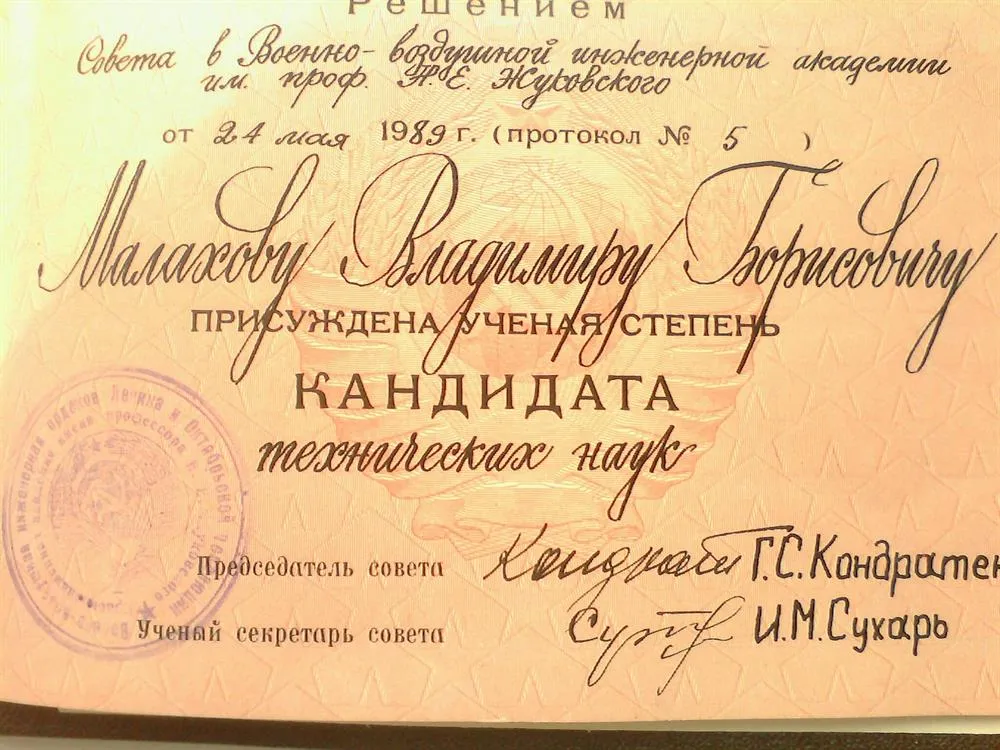 Решением
Совета в Военно-воздушной инженерной академии
им. проф. Н. Е. Жуковского
от 24 мая 1989 г. (протокол № 5 )
Малахову Владимиру Борисовичу
ПРИСУЖДЕНА УЧЕНАЯ СТЕПЕНЬ
КАНДИДАТА
технических наук
Председатель совета Г.С.Кондратен
Ученый секретарь совета И.М.Сухарь
инженерная орденов Ленина и Октябрьской
имени профессора Н.